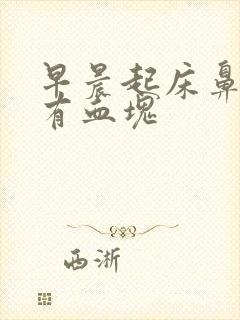 早晨起床鼻
有血块
西淅